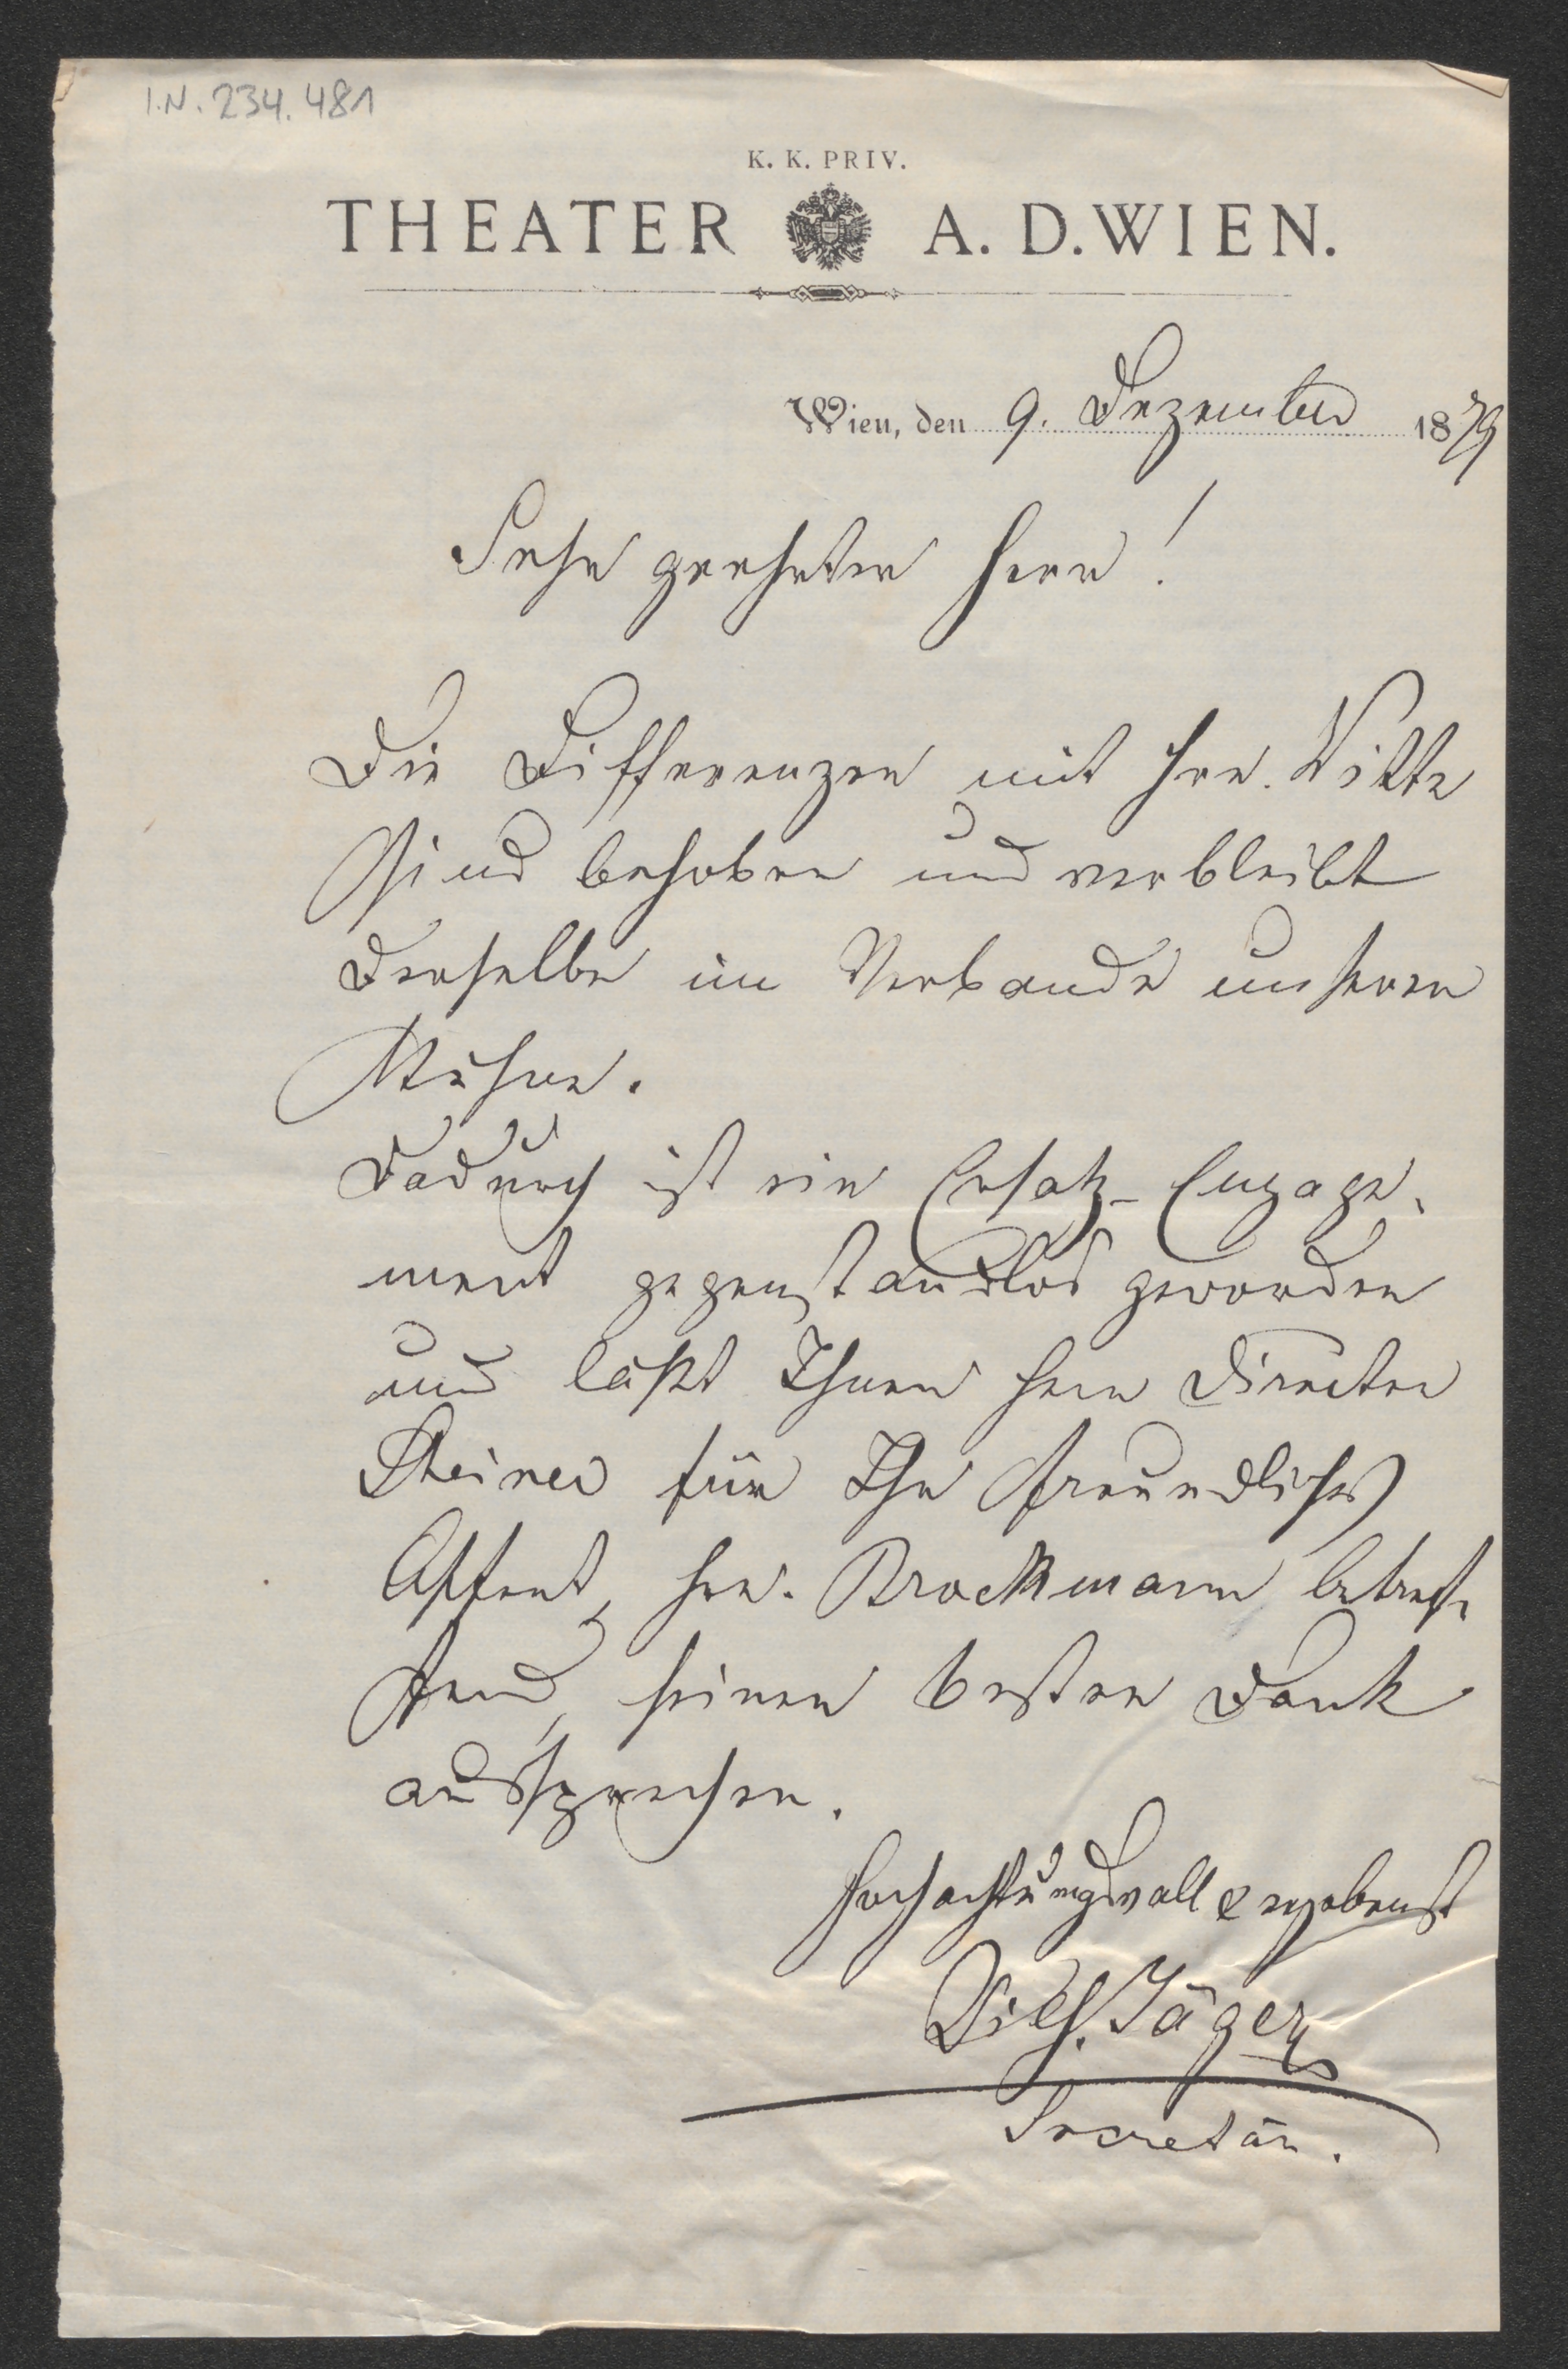 I.N. 234.481
K. K. PRIV.
THEATER A. D. WIEN.
Wien, den 9. Dezember 1879
Sehr geehrter Herr!
Die Differenzen mit Hrn. Witte
sind behoben und verbleibt
derselbe im Verbande unserer
Bühne.
Dadurch ist ein Ersatz-Engage-
ment gegenstandlos geworden
und läßt Ihnen Herr Director
Steiner für Ihr freundliches
Offert, Hrn. Brockmann betref-
fend, seinen besten Dank
aussprechen.
Hochachtungsvoll & ergebenst
Wilh. Jäger
Secretär.